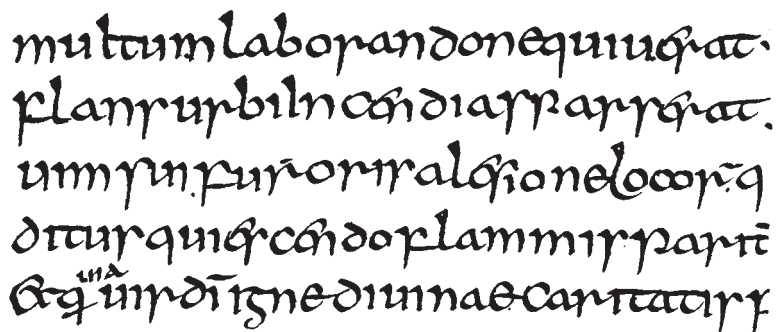 multum laborando nequiuerat·
flans urbi Incendia sparserat.
uim sui furoris alesione locor̄ q
ditus quiescendo flammis parit̄
et q uir dī igne diuinae caritatis f